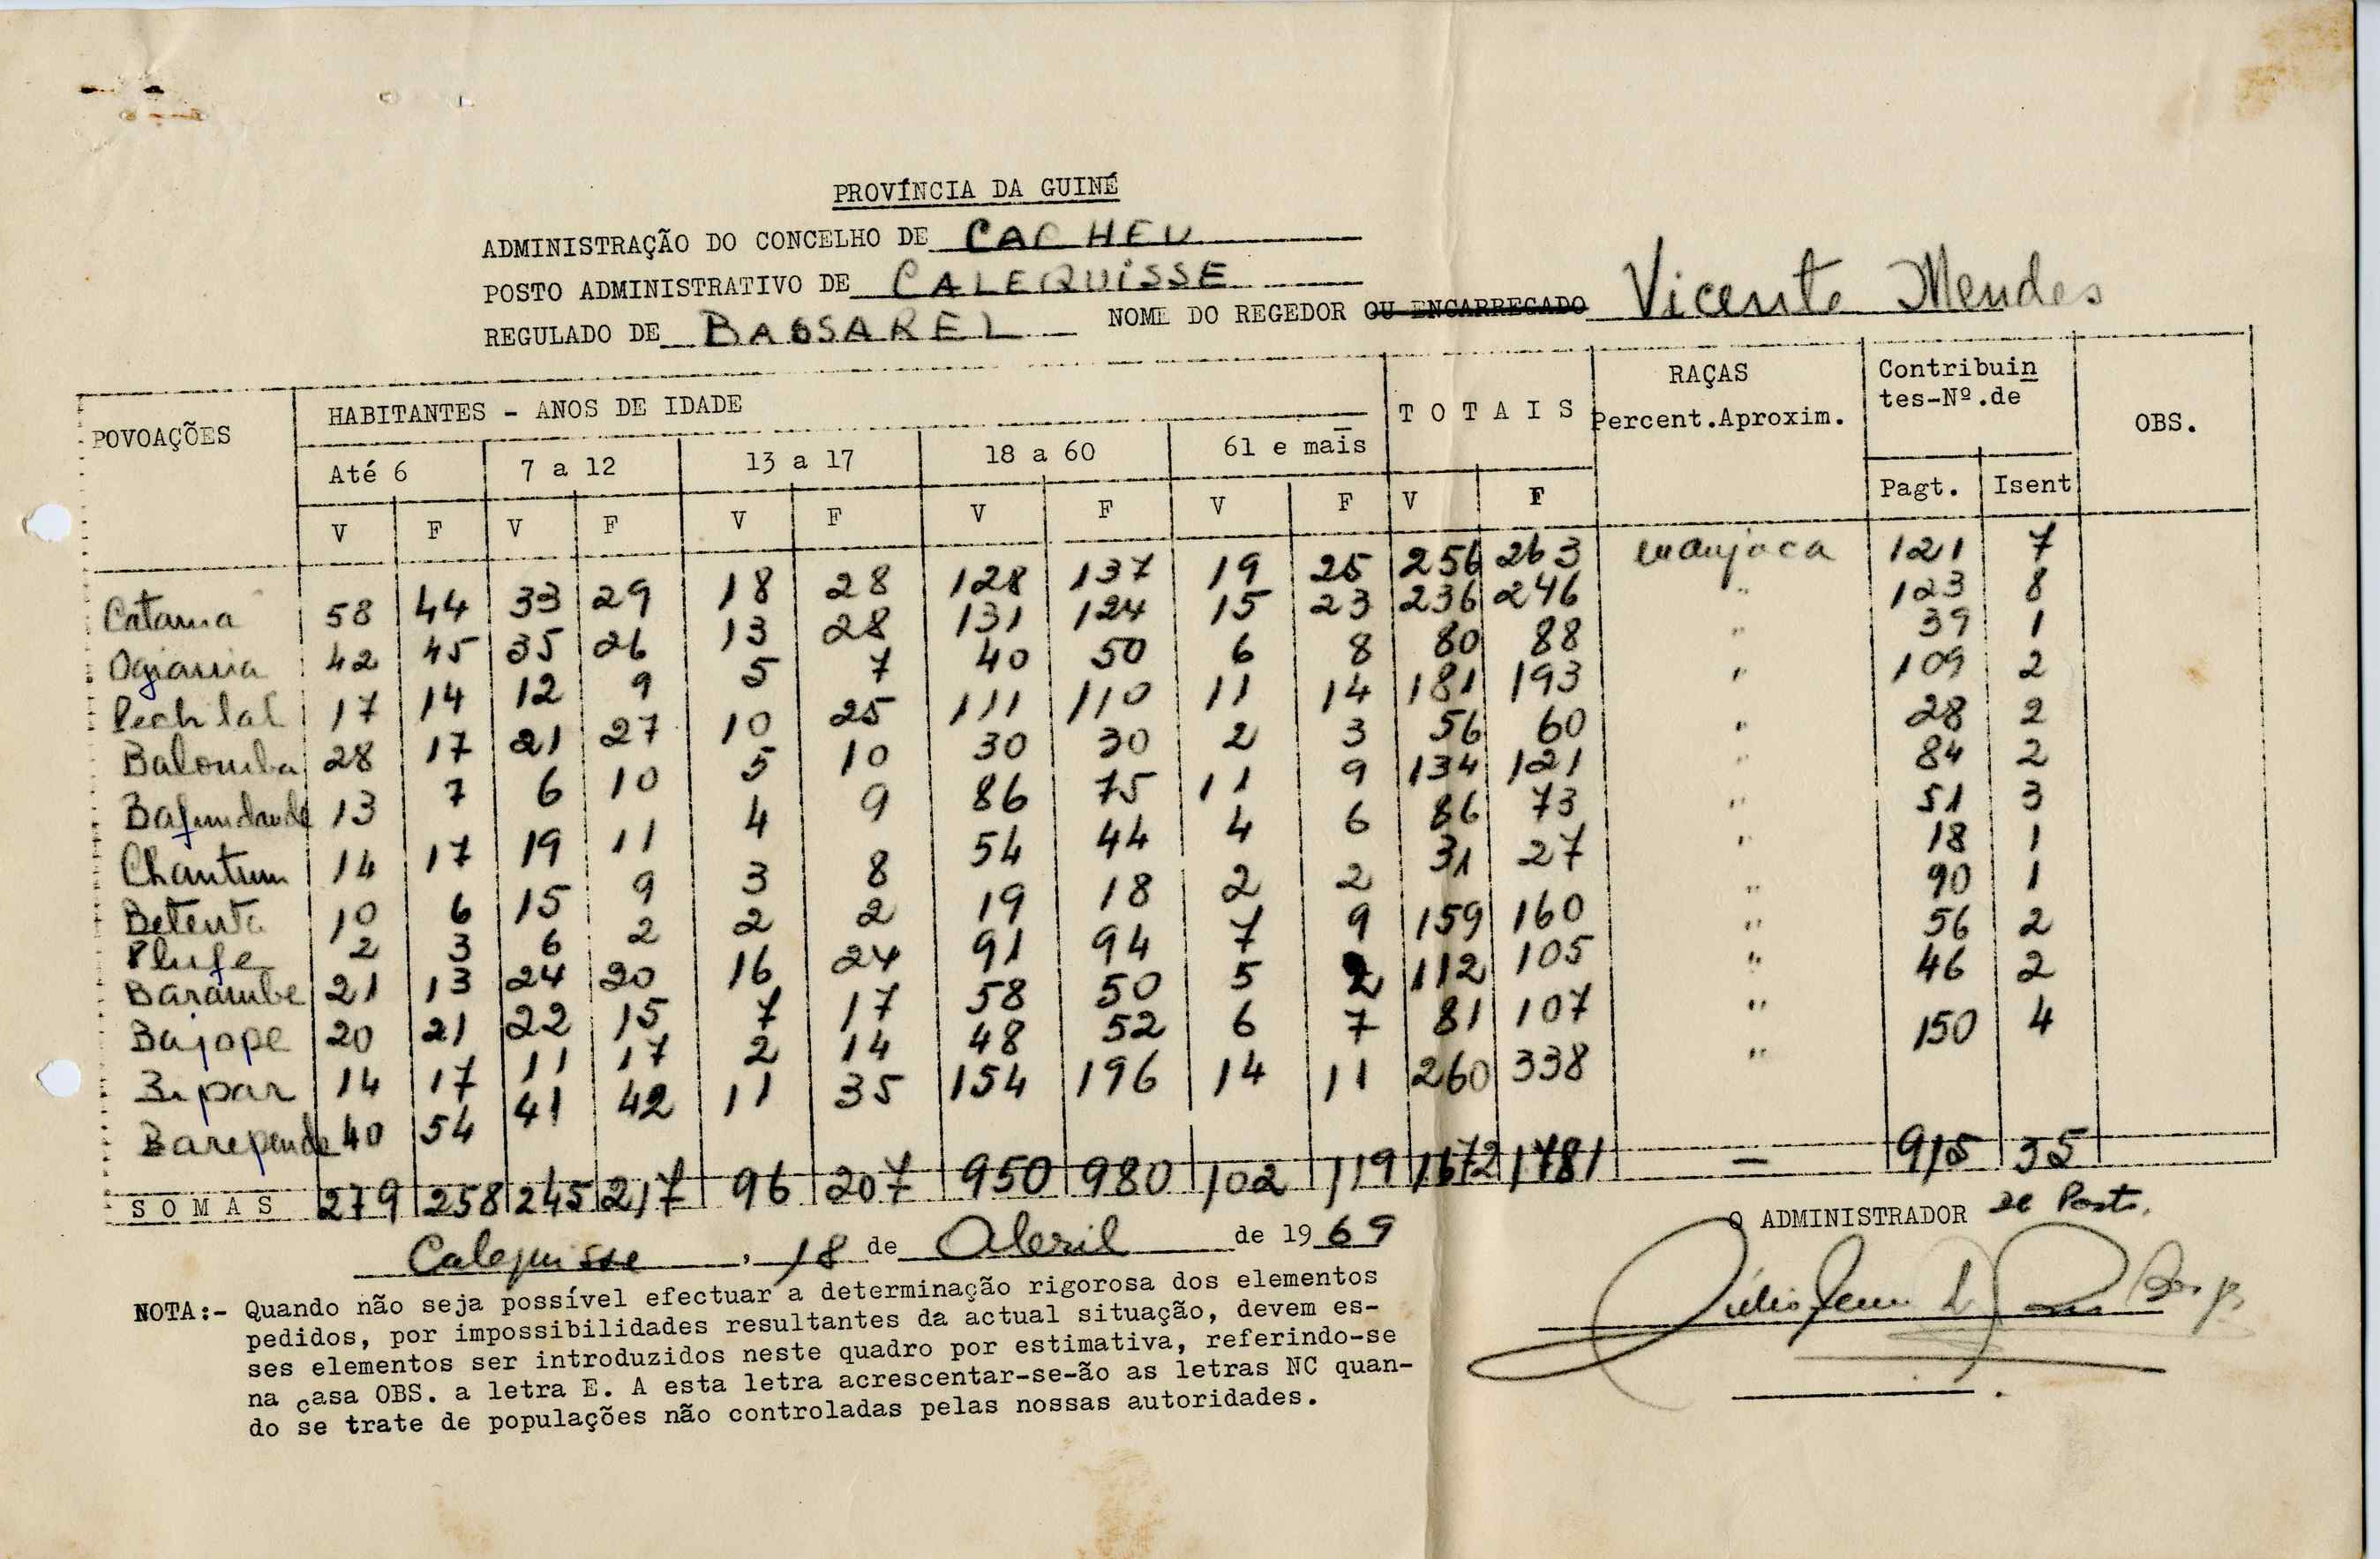 PROVÍNCIA DA GUINÉ
ADMINISTRAÇÃO DO CONCELHO DE CACHEU
POSTO ADMINISTRATIVO DE CALEQUISSE
REGULADO DE BASSAREL NOME DO REGEDOR OU ENCARREGADO Vicente Mendes
POVOAÇÕES HABITANTES - ANOS DE IDADE TOTAIS RAÇAS Percent.Aproxim. Contribuin tes-Nº.de OBS.
Até 6 7 a 12 13 a 17 18 a 60 61 e mais Pagt. Isent
V F V F V F V F V F V F
Catama 58 44 33 29 18 28 128 137 19 25 256 263 manjaca 121 7
Ogiamia 42 45 35 26 13 28 131 124 15 23 236 246 " 123 8
Pechilal 17 14 12 9 5 7 40 50 6 8 80 88 " 39 1
Balomba 28 17 21 27 10 25 111 110 11 14 181 193 " 109 2
Bafundande 13 7 6 10 5 10 30 30 2 3 56 60 " 28 2
Chantum 14 17 19 11 4 9 86 75 11 9 134 121 " 84 2
Betenta 10 6 15 9 3 8 54 44 4 6 86 73 " 51 3
Plufe 2 3 6 2 2 2 19 18 2 2 31 27 " 18 1
Barambe 21 13 24 20 16 24 91 94 7 9 159 160 " 90 1
Bajope 20 21 22 15 7 17 58 50 5 2 112 105 " 56 2
Bipar 14 17 11 17 2 14 48 52 6 7 81 107 " 46 2
Barepende 40 54 41 42 11 35 154 196 14 11 260 338 " 150 4
SOMAS 279 258 245 217 96 207 950 980 102 119 1672 1781 — 915 35
Calequisse, 18 de Abril de 1969
O ADMINISTRADOR de Posto,
NOTA:- Quando não seja possível efectuar a determinação rigorosa dos elementos
pedidos, por impossibilidades resultantes da actual situação, devem es-
ses elementos ser introduzidos neste quadro por estimativa, referindo-se
na casa OBS. a letra E. A esta letra acrescentar-se-ão as letras NC quan-
do se trate de populações não controladas pelas nossas autoridades.